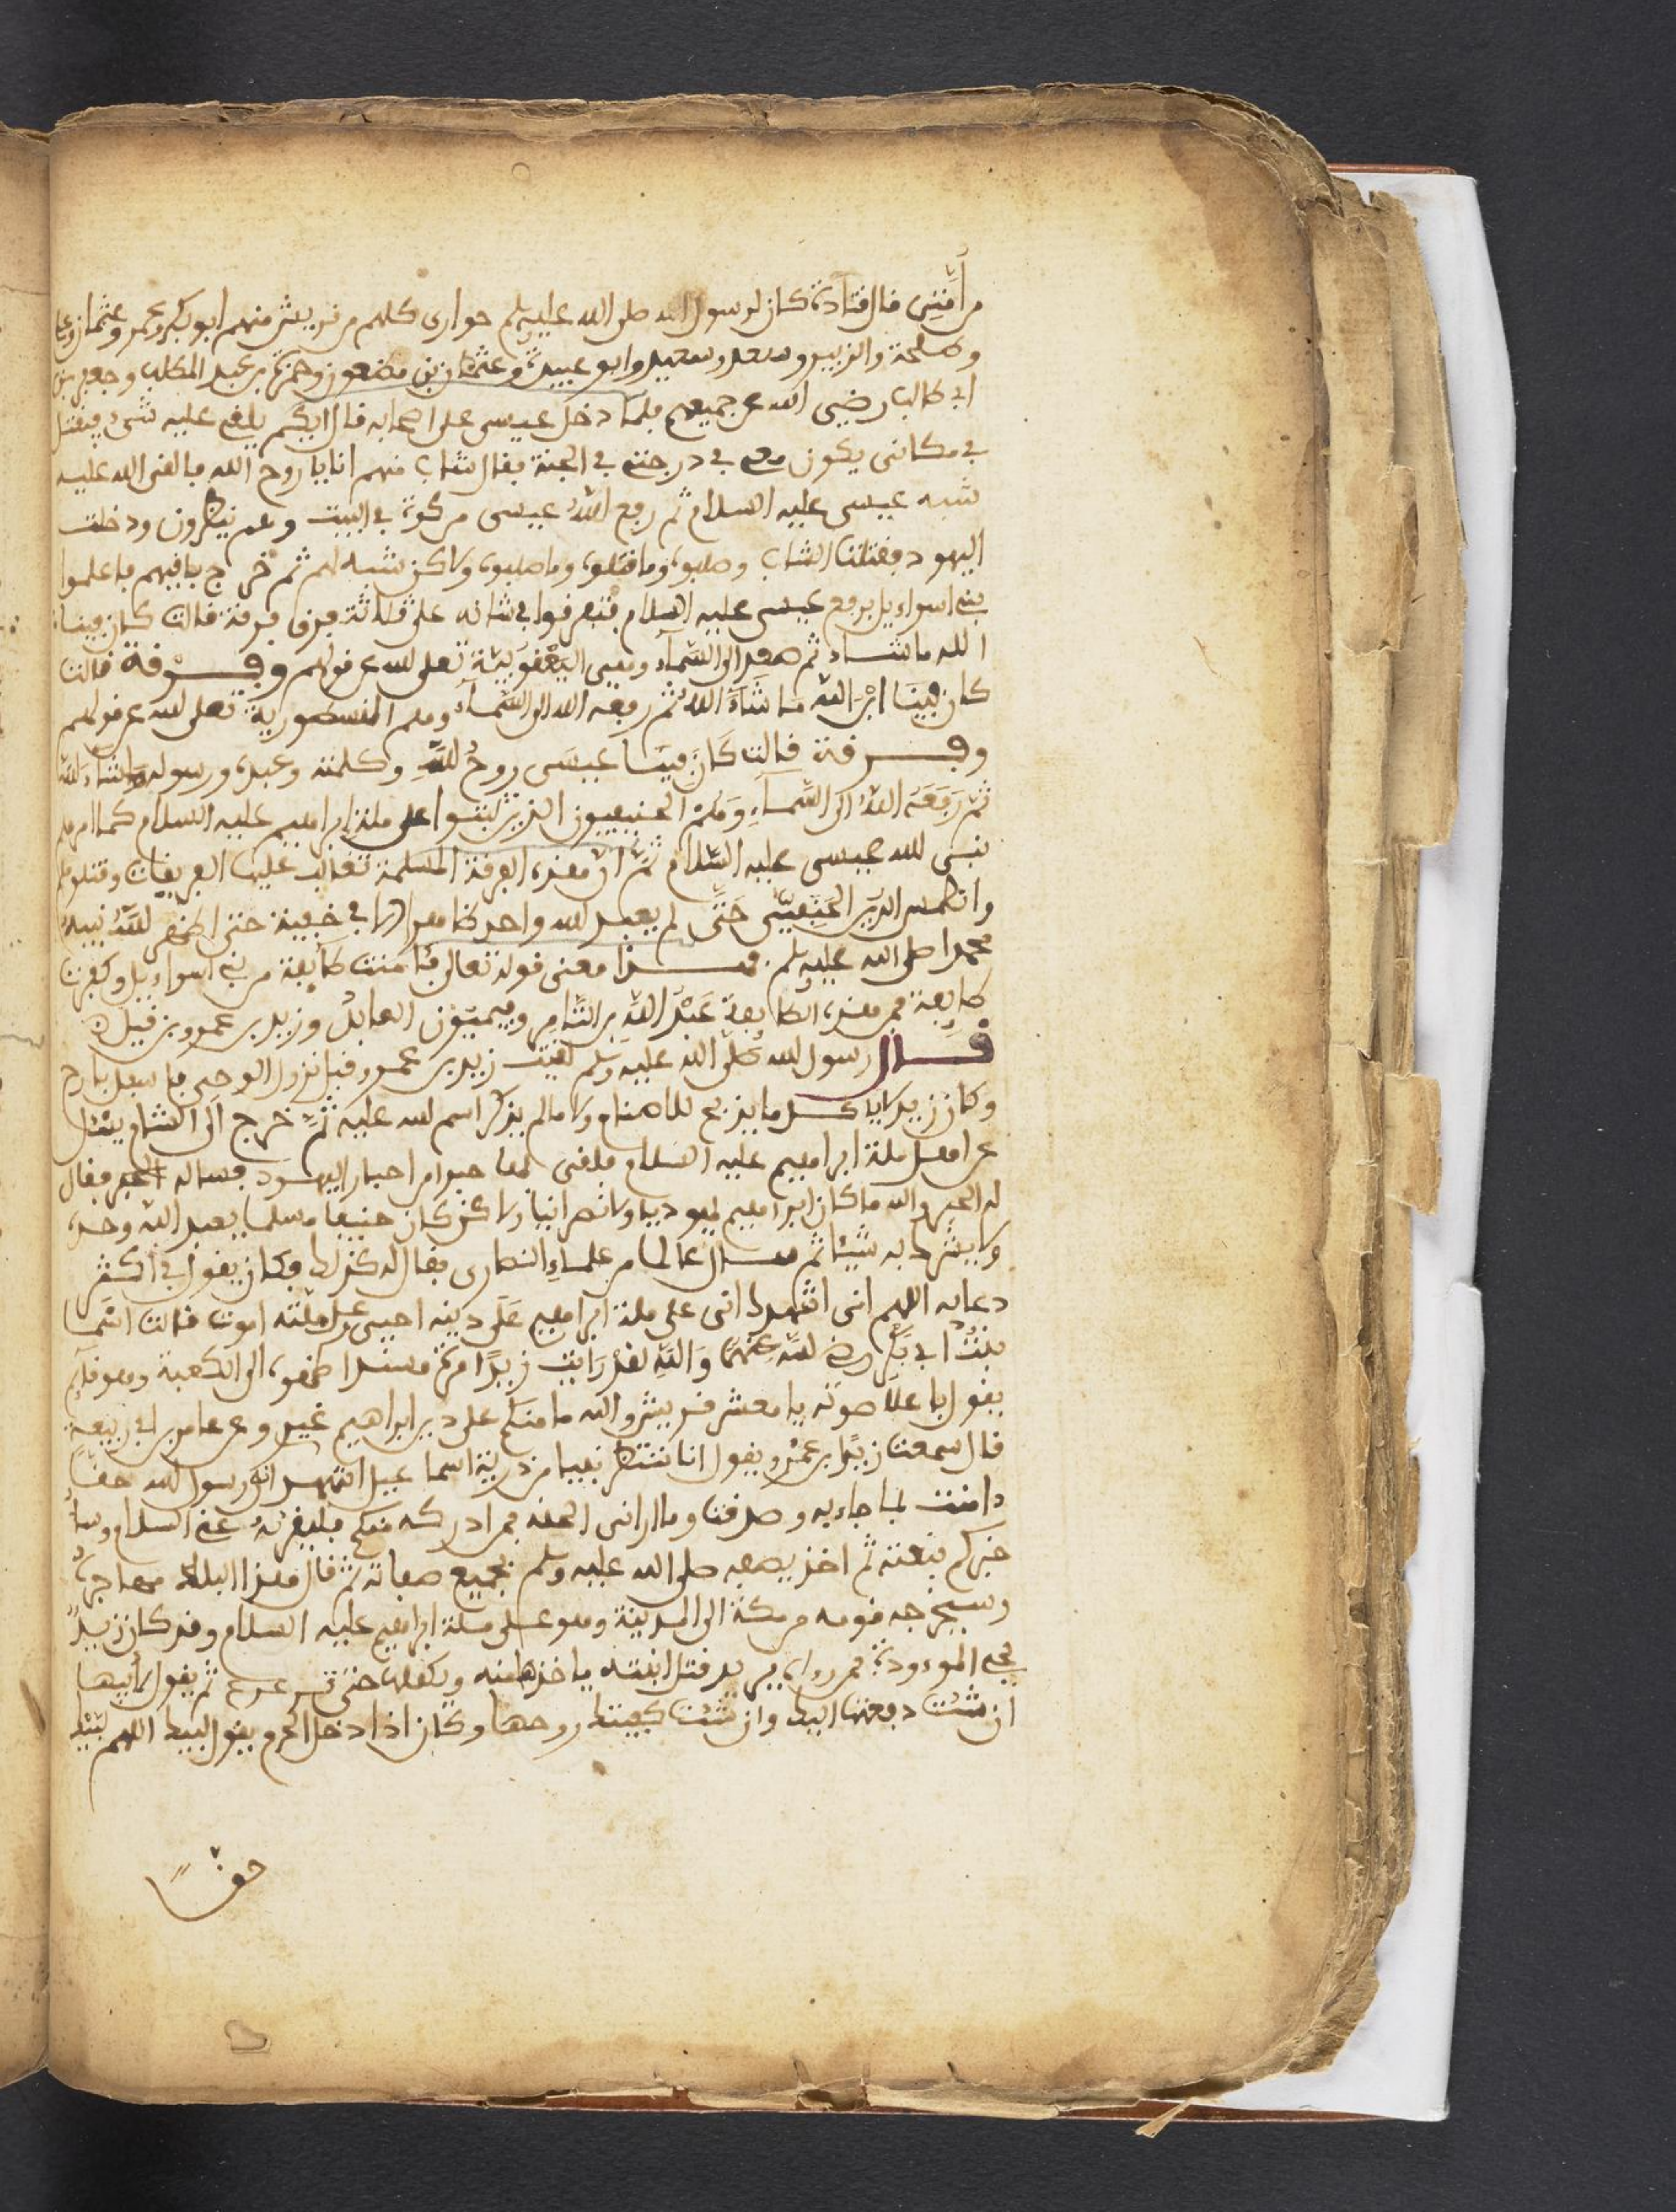 من أمتي قال قتادة كان لرسول الله صلى الله عليه وسلم حوارى كلهم من قريش منهم ابو بكر وعمر وعثمان وعلى
وطلحة والزبير وسعد وسعيد وابو عبيدة وعثمان بن مضعون وحمزة بن عبد المطلب وجعفر بن
ابى طالب رضي الله عن جميعهم فلما دخل عيسى على اصحابه قال ايكم يلقى عليه شبهي فيقتل
في مكانى يكون معي في درجتي في الجنة فقال شاب منهم انا يا روح الله فالقى الله عليه
شبه عيسى عليه السلام ثم رفع الله عيسى من كوة في البيت وهم ينظرون ودخلت
اليهود فقتلت الشاب وصلبوه وما قتلوه وما صلبوه ولاكن شبه لهم ثم خرج باقيهم فاعلموا
بني اسراءيل برفع عيسى عليه السلام فتفرقوا في شانه على ثلاثة فرق فرقة قالت كان فينا
الله ما شاء ثم صعد الى السماء وهي اليعقوبية تعلى الله عن قولهم وفرقة قالت
كان فينا ابن الله ما شاء الله ثم رفعه الله الى السماء وهم النسطورية تعلى الله عن قولهم
وفرقة قالت كان فينا عيسى روح الله وكلمته وعبده ورسوله ما شاء الله
ثم رفعه الله الى السماء وهم الحنيفيون الذين ثبتوا على ملة ابراهيم عليه السلام كما امرهم
نبي الله عيسى عليه السلام ثم ان هذه الفرقة المسلمة تغالب عليها الفريقان وقتلوهم
وانطمس الدين الحنيفي حتى لم يعبد الله واحد ظاهرا الا في خفية حتى اظهر الله نبيه
محمدا صلى الله عليه وسلم فهذا معنى قوله تعالى فئامنت طايفة من بني اسراءيل وكفرت
طايفة فمن هذه الطايفة عبد الله بن التامر وفيميون العابد وزيد بن عمرو بن فيل
قال رسول الله صلى الله عليه وسلم لقيت زيد بن عمرو قبل نزول الوحي باسفل بلدح
وكان زيد لا ياكل ما يذبح للاصنام ولا ما لم يذكر اسم الله عليه ثم خرج الى الشام يسئل
عن اهل ملة ابراهيم عليه السلام فلقى بها حبرا من احبار اليهود فساله الحبر فقال
له الحبر والله ما كان ابراهيم يهوديا ولا نصرانيا ولاكن كان حنيفا مسلما يعبد الله وحده
ولا يشرك به شيئا ثم سال عالما من علماء النصارى فقال له كذلك فكان يقول في اكثر
دعايه اللهم انى اشهدك انى على ملة ابراهيم على دينه احيى وعلى ملته اموت قالت اسما
بنت ابي بكر رضي الله عنهما والله لقد رايت زيدا مرة مسندا ظهره الى الكعبة وهو قايم
يقول باعلا صوته يا معشر قريش والله ما منكم على دين ابراهيم غيرى وعن عامر بن ابى ربيعة
قال سمعت زيد بن عمرو يقول انا ننتظر نبيا من ذرية اسماعيل اشهد انه رسول الله حقا
دامنت بما جاء به وصدقت وما ارانى الحقه فمن ادركه منكم فليقرئه عني السلام وسا
خبركم بنعته ثم اخذ يصفه صلى الله عليه وسلم بجميع صفاته ثم قال هذا البلد مهاجره
وسيخرجه قومه من مكة الى المدينة وهو على ملة ابراهيم عليه السلام وقد كان زيد
يحي الموءودة فمن رءاه يريد قتل ابنته ياخذها منه ويكفلها حتى تترعرع ثم يقول لابيها
ان شئت دفعتها اليك وان شئت كفيتك روحها وكان اذا دخل الحرم يقول لبيك اللهم لبيك
حقا